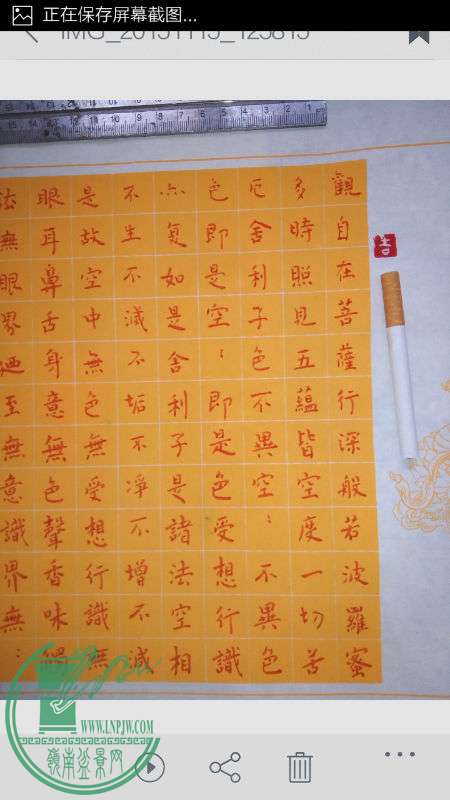 正在保存屏幕截图...
IMG_20151115_125815
觀自在菩薩行深般若波羅蜜
多時照見五蘊皆空度一切苦
厄舍利子色不異空〻不異色
色即是空〻即是色受想行識
亦复如是舍利子是諸法空相
不生不滅不垢不淨不增不減
是故空中無色無受想行識無
眼耳鼻舌身意無色聲香味觸
法無眼界廼至無意識界無〻
吉
WWW.LNPJW.COM
嶺南盆景网